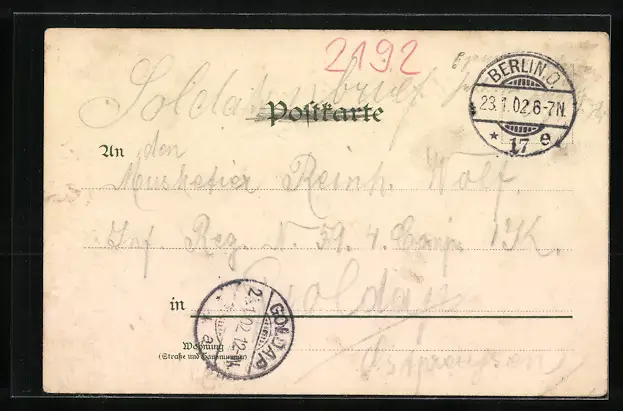 2192
Soldatenbrief
BERLIN.O.
23.1.02.6-7N.
* 17 e
Postkarte
An den
Musketier Reinh. Wolf
Inf. Reg. N. 59. 4. Comp. 1K.
in Goldap
GOLDAP
* a
Wohnung
(Straße und Hausnummer)
Ostpreussen